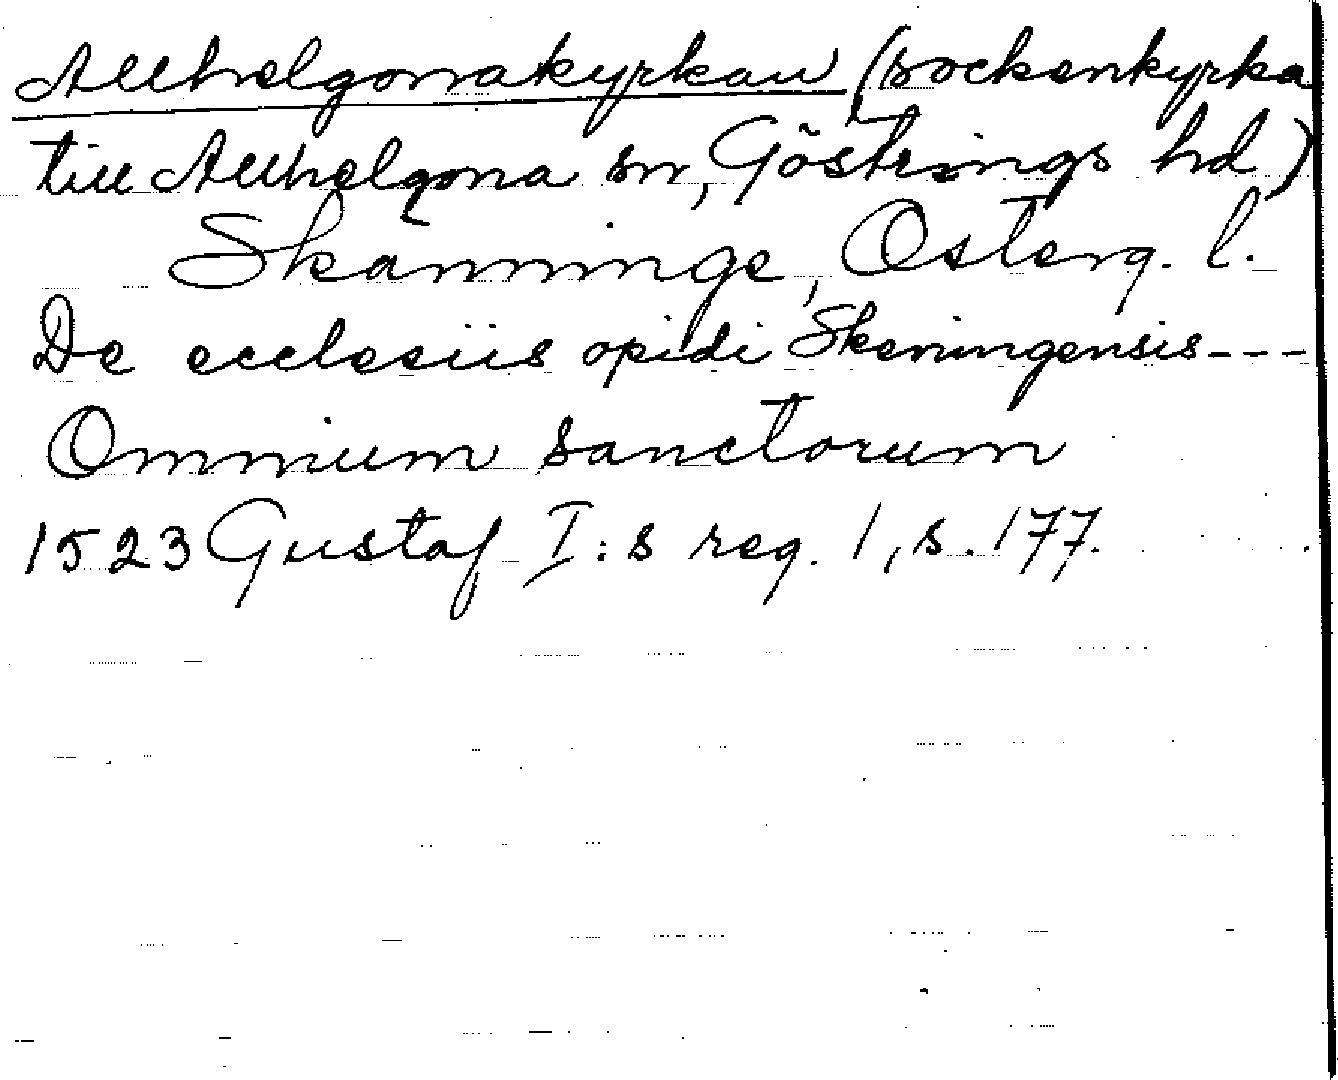 Allhelgonakyrkan (sockenkyrka
till Allhelgona sn, Göstrings hd)
Skänninge, Österg. l.
De ecclesiis opidi Skeningensis---
Omnium sanctorum
1523 Gustaf I:s reg. 1, s. 177.